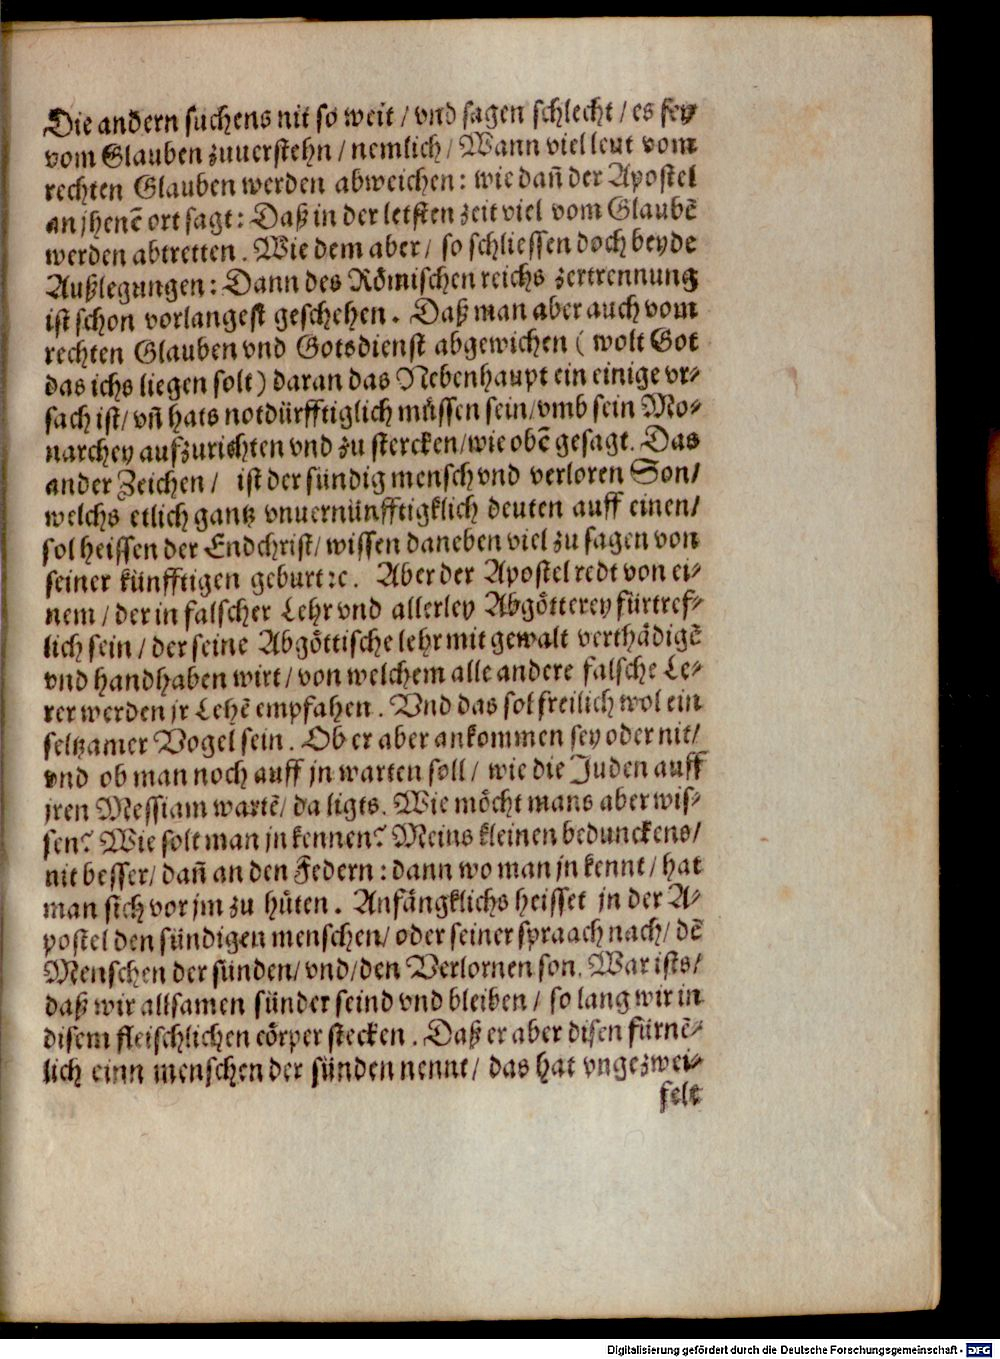 Die andern suchens nit so weit / vnd sagen schlecht / es sey
vom Glauben zuuerstehn / nemlich / Wann viel leut vom
rechten Glauben werden abweichen: wie dañ der Apostel
an jhenē ort sagt: Daß in der letsten zeit viel vom Glaubē
werden abtretten. Wie dem aber / so schliessen doch beyde
Außlegungen: Dann des Römischen reichs zertrennung
ist schon vorlangest geschehen. Daß man aber auch vom
rechten Glauben vnd Gotsdienst abgewichen ( wolt Got
das ichs liegen solt) daran das Nebenhaupt ein einige vr-
sach ist/ vñ hats notdürfftiglich müssen sein/ vmb sein Mo-
narchey aufzurichten vnd zu stercken/ wie obē gesagt. Das
ander Zeichen / ist der sündig mensch vnd verloren Son/
welchs etlich gantz vnuernünfftigklich deuten auff einen/
sol heissen der Endchrist/ wissen daneben viel zu sagen von
seiner künfftigen geburt ꝛc. Aber der Apostel redt von ei-
nem / der in falscher Lehr vnd allerley Abgötterey fürtref-
lich sein / der seine Abgöttische lehr mit gewalt verthädigē
vnd handhaben wirt / von welchem alle andere falsche Le-
rer werden jr Lehē empfahen. Vnd das sol freilich wol ein
seltzamer Vogel sein. Ob er aber ankommen sey oder nit/
vnd ob man noch auff jn warten soll / wie die Juden auff
jren Messiam wartē/ da ligts. Wie möcht mans aber wis-
sen? Wie solt man jn kennen? Meins kleinen bedunckens/
nit besser/ dañ an den Federn: dann wo man jn kennt / hat
man sich vor jm zu hüten. Anfängklichs heisset jn der A-
postel den sündigen menschen/ oder seiner spraach nach/ dē
Menschen der sünden/ vnd/ den Verlornen son. War ists/
daß wir allsamen sünder seind vnd bleiben / so lang wir in
disem fleischlichen cörper stecken. Daß er aber disen fürnē-
lich einn menschen der sünden nennt / das hat vngezwei-
felt
Digitalisierung gefördert durch die Deutsche Forschungsgemeinschaft - DFG